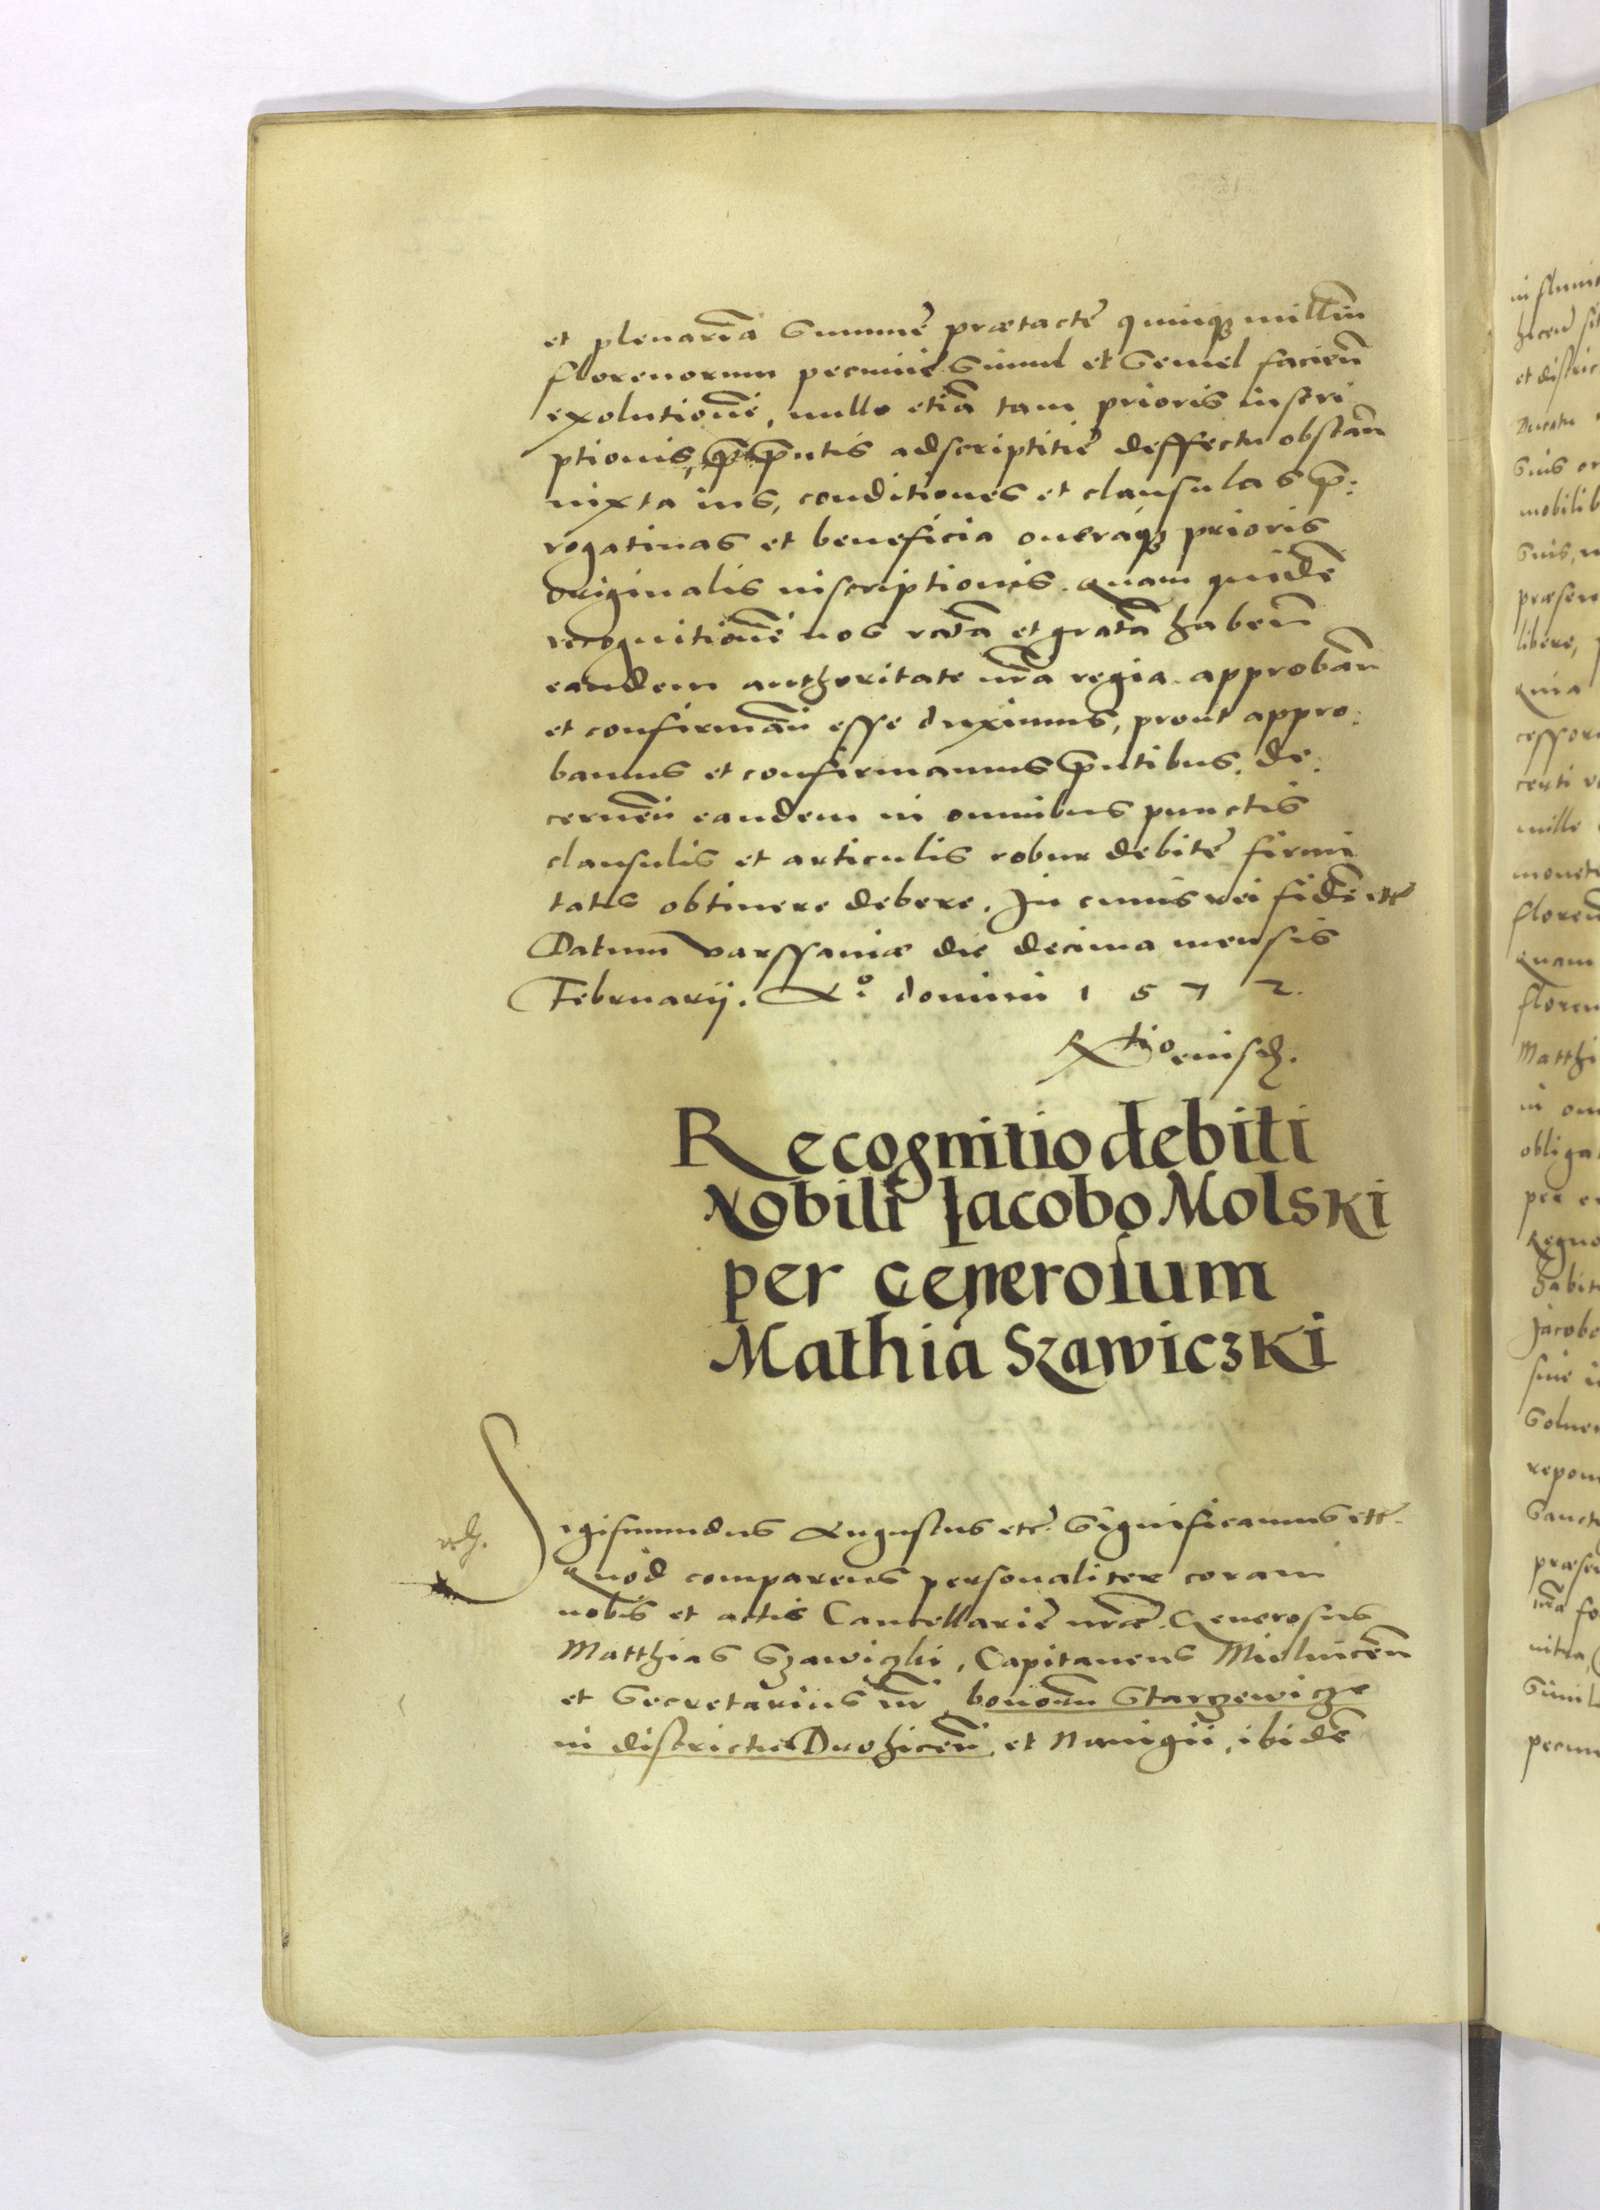 et plenariā summę prætactę quinqꝫ milliū
florenorum pecunię simul et semel facien̄
exolutionē, nullo etiā tam prioris inscri
ptionis, q̃ p̃ntis adscriptitię deffectu obstan̄
iuxta ius, conditiones et clausulas p̃:
rogatiuas et beneficia oneraqꝫ prioris
originalis inscriptionis. Quam quidē
recognitionē nos ratā et gratā haben̄
eandem authoritate nr̃a regia approban̄
et confirman̄ esse duximus, prout appro:
bamus et confirmamus p̃ntibus. de:
cernen̄ eandem in omnibus punctis
clausulis et articulis robur debitę firmi
tatis obtinere debere. In cuius rei fidē etc̃
Datum Varssauiæ die decima mensis
Februarij. Aº. domini 1 5 7 2.
Rtio eiusd̃.
Recognitio debiti
Nobili Iacobo Molski
per Generosum
Mathiā Szawiczki
Sigismundus Augustus etc̃. Significamus etc̃.
Quod comparens personaliter coram
nobis et actis Cancellarię nr̃æ. Generosus
Matthias Szawiczki, Capitaneus Mielnicen̄
et Secretarius nr̃, bonorū Starzewicze
in districtu Drohicen̄, et Nauigii, ibidē